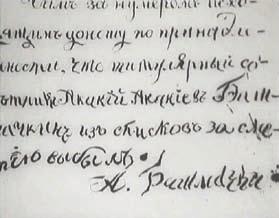 симъ за нумеромъ исхо-
ящимъ доношу по принадле-
ности, что титулярный со-
ѣтникъ Акакій Акакіевъ Баш-
мачкинъ изъ списковъ за сме-
ртію выбылъ.
А.